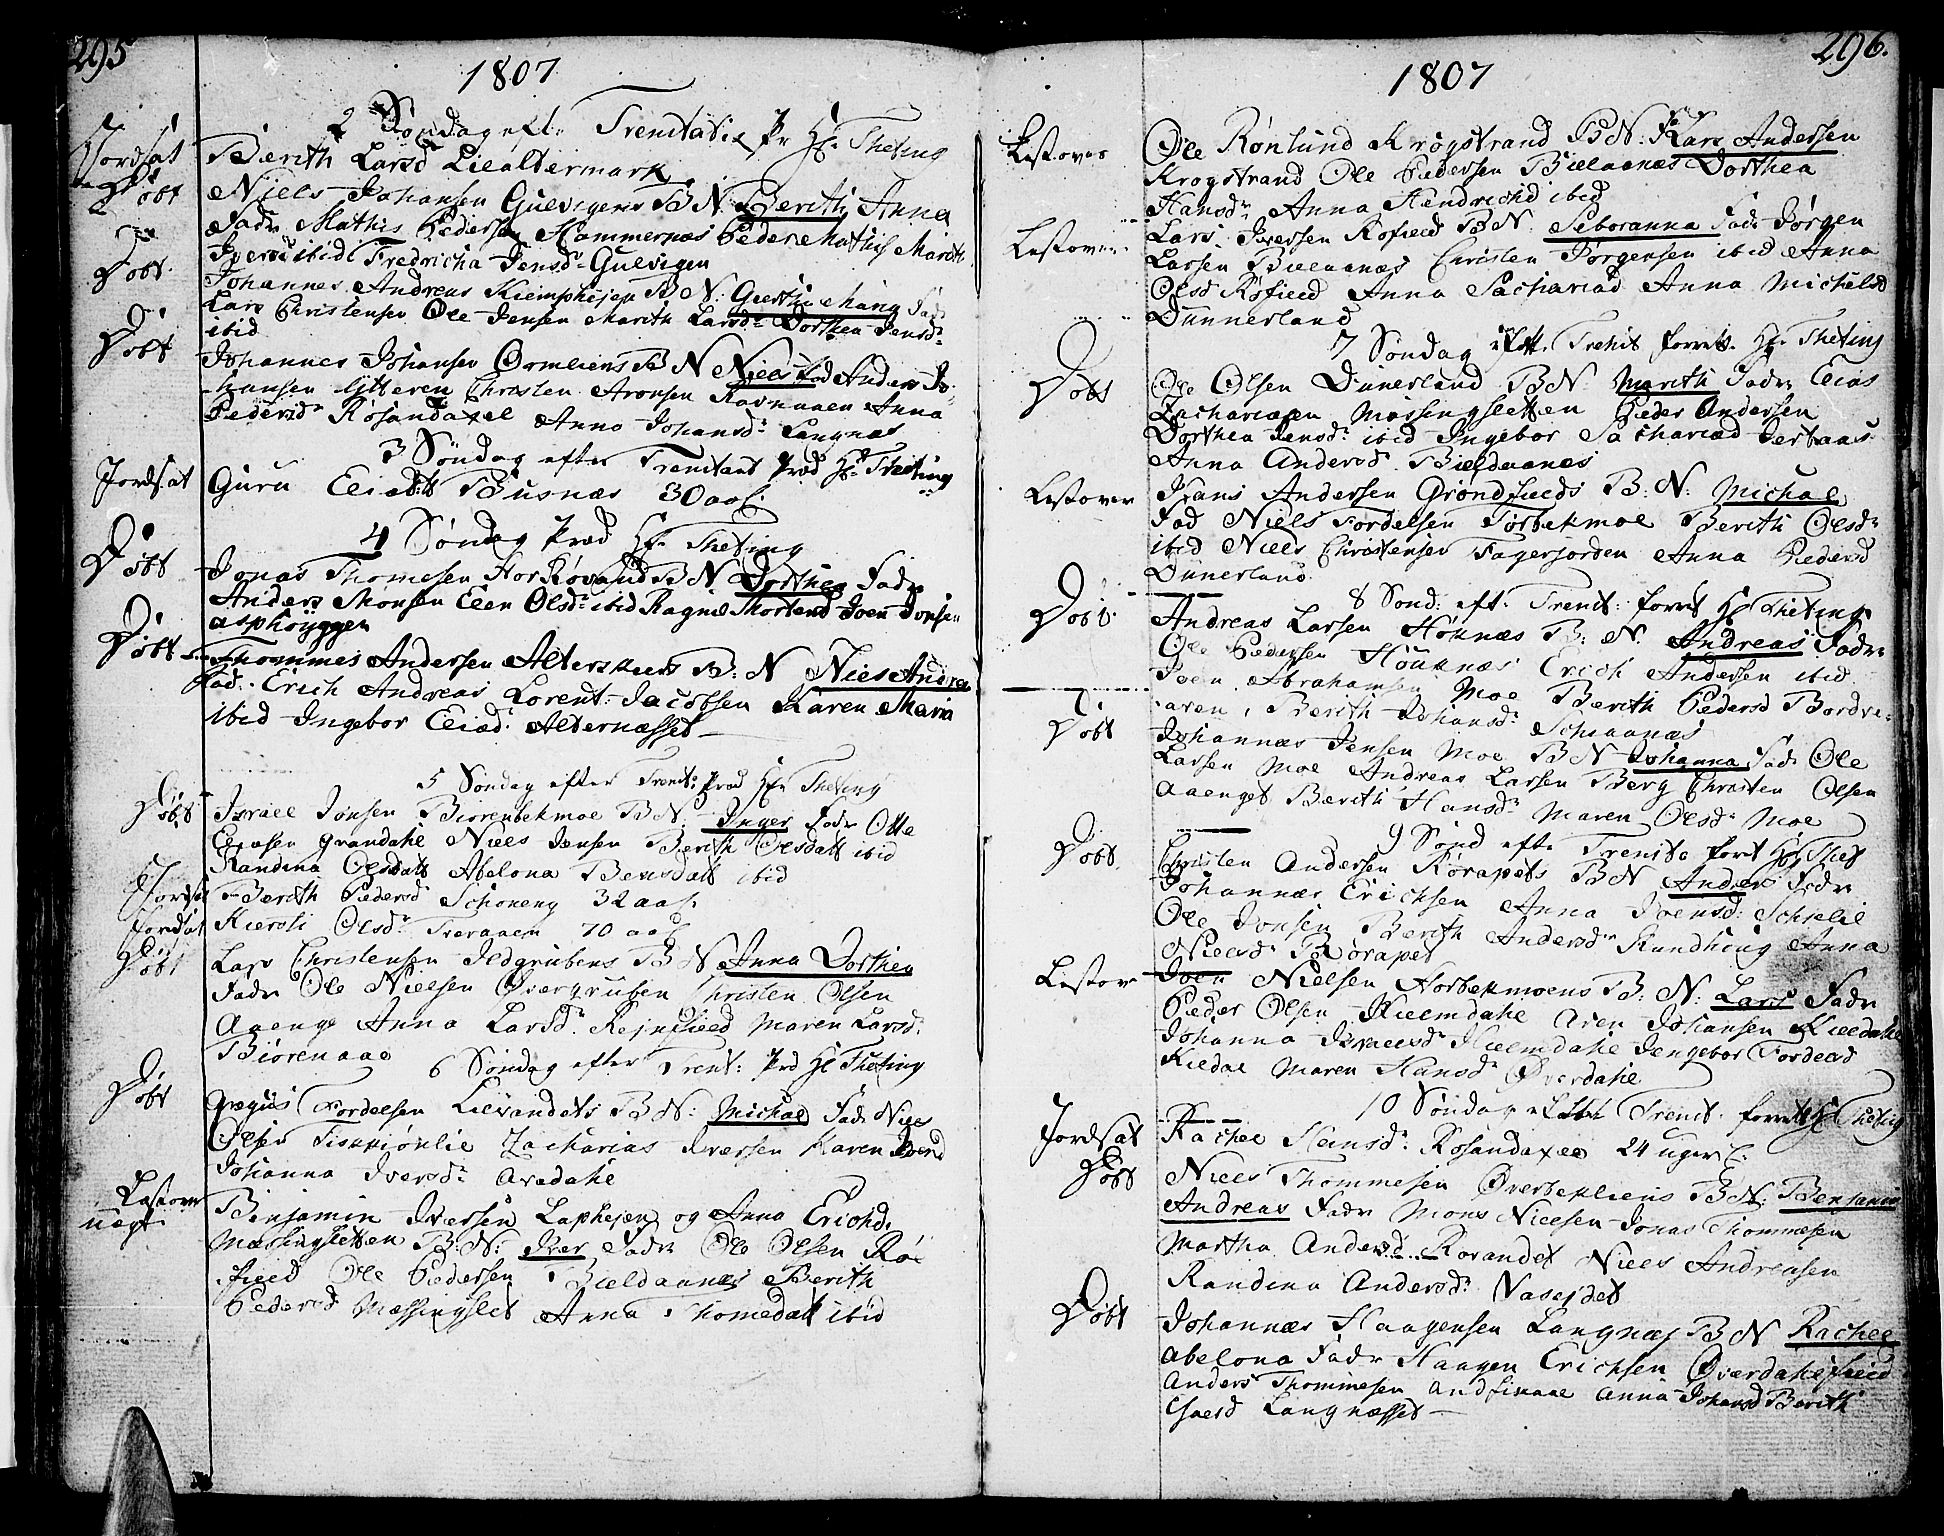 295
1807
2 Søndag eft. Trenitatis Pr Hr Theting
Jordsat Berith Larsd Liealtermark
Døbt Niels Johansen Gulvigens B N Berith Anna
Fadr Mathis Pedersen Hammernæs Peder Mathis Marit
Iversd ibid Fredricha Jensd Gulvigen
Døbt Johannes Andreas Kiemphejen B N: Giertru Maria Fad
Lars Christensen Ole Jensen Marith Larsd Dorthea Jensd
ibid
Døbt Johannes Johansen Oomliens B N Niels Fad Anders Jo-
hansen Ytteren Christen Aronsen Ravnaaen Anna
Pedersd Røsandaxel Anna Johansd Langnæs
3 Søndag efter Trenitati Præd Hr Theting
Jordsat Guru Eliædt Busnæs 30 aar.
4 Søndag Præd Hr Theting
Døbt Jonas Thomesen B N Dorthea Fadr
Anders Monsen Elen Olsd ibid Ragnel Joen Jonsen
asphøyggen
Døbt Thommes Andersen Alterskiers B: N Niels Andrea
Fad. Erich Andreas Lorent Jacobsen Karen Maria
ibid Ingebor Eliæd Alternæsset
5 Søndag efter Trenit: Præd Hr Theting
Døbt Israel Jonsen Biørenbekmoe B N: Inger Fadr Olle
Eliasen Grandahl Niels Jensen Berith Olsdatt ibid
Randina Olsdatt Abelona Bensdatt ibid
Jordsat Berith Pedersd Schoneng 32 aar.
Jordsat Kiersti Olsd Treraaen 70 aar
Døbt Lars Christensen Ildgrubens B N Anna Dorthea
Fadr Ole Nielsen Øvergruben Christen Olsen
Aaenge Anna Larsd Rejnfield Maren Larsd
Biørenaae
6 Søndag efter Trent: Prd Hr Theting
Døbt Gregus Fordelsen Lievandets B N: Michal Fadr Niels
Olsen Zacharias Iversen Karen
Johanna Iversd Avedahl
Løstover Binjamin Iversen Laphejen og Anna Erichd.
uægt Mæssingsletten B: N: Iver Fadr Ole Olsen Rø-
field Ole Pedersen Bieldaanæs Berith
Pedersd Mæssingslet Anna Thomedatt ibid
296.
1807
Løstover Ole Rønlund Krogstrand B N: Lars Andersen
Krogstrand Ole Pedersen Bielaanæs Dorthea
Hansd Anna Hendrichd ibid
Løstover Lars Iversen Røfield B N: Seboranna Fadr Jørgen
Larsen Bielaanæs Christen Jørgensen ibid Anna
Olsd Røfield Anna Sachariad Anna Michelsd
Dunnerland
7 Søndag eftr Trenit forrett. Hr Theting
Døbt Ole Olsen Dunerland B N: Marith Fadr Elias
Zachariasen Mæssingsletten Peder Andersen
Dorthea Jensd ibid Ingebor Sachariæd
Anna Andersd Bieldaanes
Løstover Hans Andersen Grønfields B: N: Michal
Fad Niels Fordelsen Torbekmoe Berith Olsd
ibid Niels Christensen Fagerjorden Anna Pedersd
Dunerland.
8 Sønd: eft. Trenit: forret Hr Theting
Døbt Andreas Larsen Høknæs B: N. Andreas Fadr
Ole Pedersen Høuknæs Erich Andersen ibid
Joen Abrahamsen Moe Berith Pedersd Bordve-
aaren, Berith Johansd Schiaanæs
Døbt Johannæs Jensen Moe B N Johanna Fadr Ole
Larsen Moe Andreas Larsen Berg Christen Olsen
Aaenget Bærith Hansd Maren Olsd Moe
9 Sønd efte Trenita forret Hr Thet
Døbt Christen Andersen Rørapets B N Anders Fadr
Johannæs Erichsen Anna Joensd Schielie
Ole Jonsen Berith Andersd Randhoug Anna
Nielsd Rørapet
Løstov Joen Nielsen Norbekmoens B: N: Lars Fadr
Peder Olsen Hielmdahl Aren Johansen Kieldahl
Johanna Israelsd Hielmdahl Ingebor Fordeld
Kieldal Maren Hansd Øverdahl
10 Søndag eftr Trenit. forrett Hr Theting
Jordsat Rachel Hansd Rosandaxel 24 uger
Døbt Niels Thommesen Øverbekliens B N: Benjamin
Andreas Fadr Mons Nielsen Jonas Thommesen
Martha Andersd Røvandet Niels Andreasen
Randina Andersd Vasejdet
Døbt Johannæs Haagensen Langnæs B N Rachel
Abelona Fadr Haagen Erichsen Øverdahlsfield
Anders Thommesen Andfinaae Anna Johansd Berith
Langnæsset